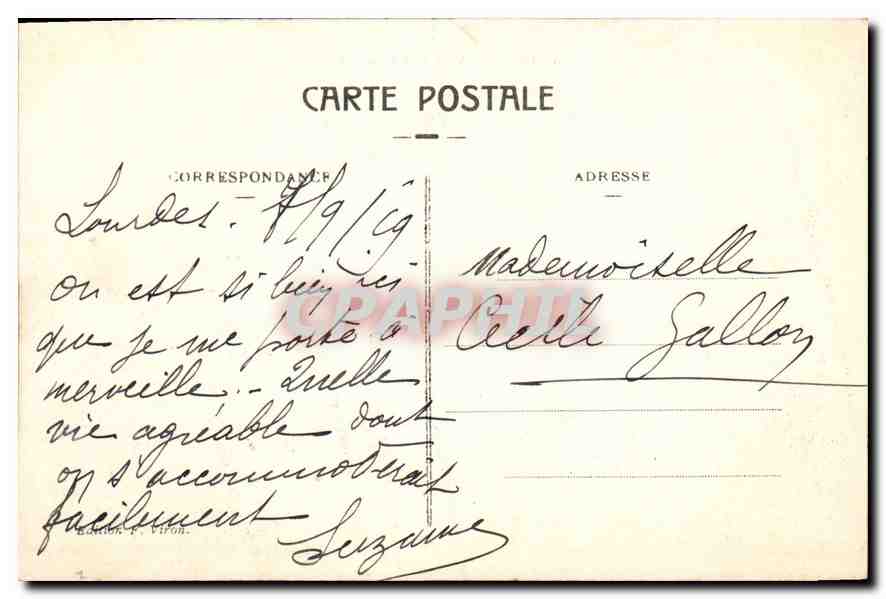 CARTE POSTALE
CORRESPONDANCE
Lourdes. 7/9/19
on est si bien ici
que je me porte à
merveille. - Quelle
vie agréable dont
on s'accommoderait
facilement
Suzanne
Edition F. Viron.
ADRESSE
Mademoiselle
Cécile Gallon
CPAPHIL